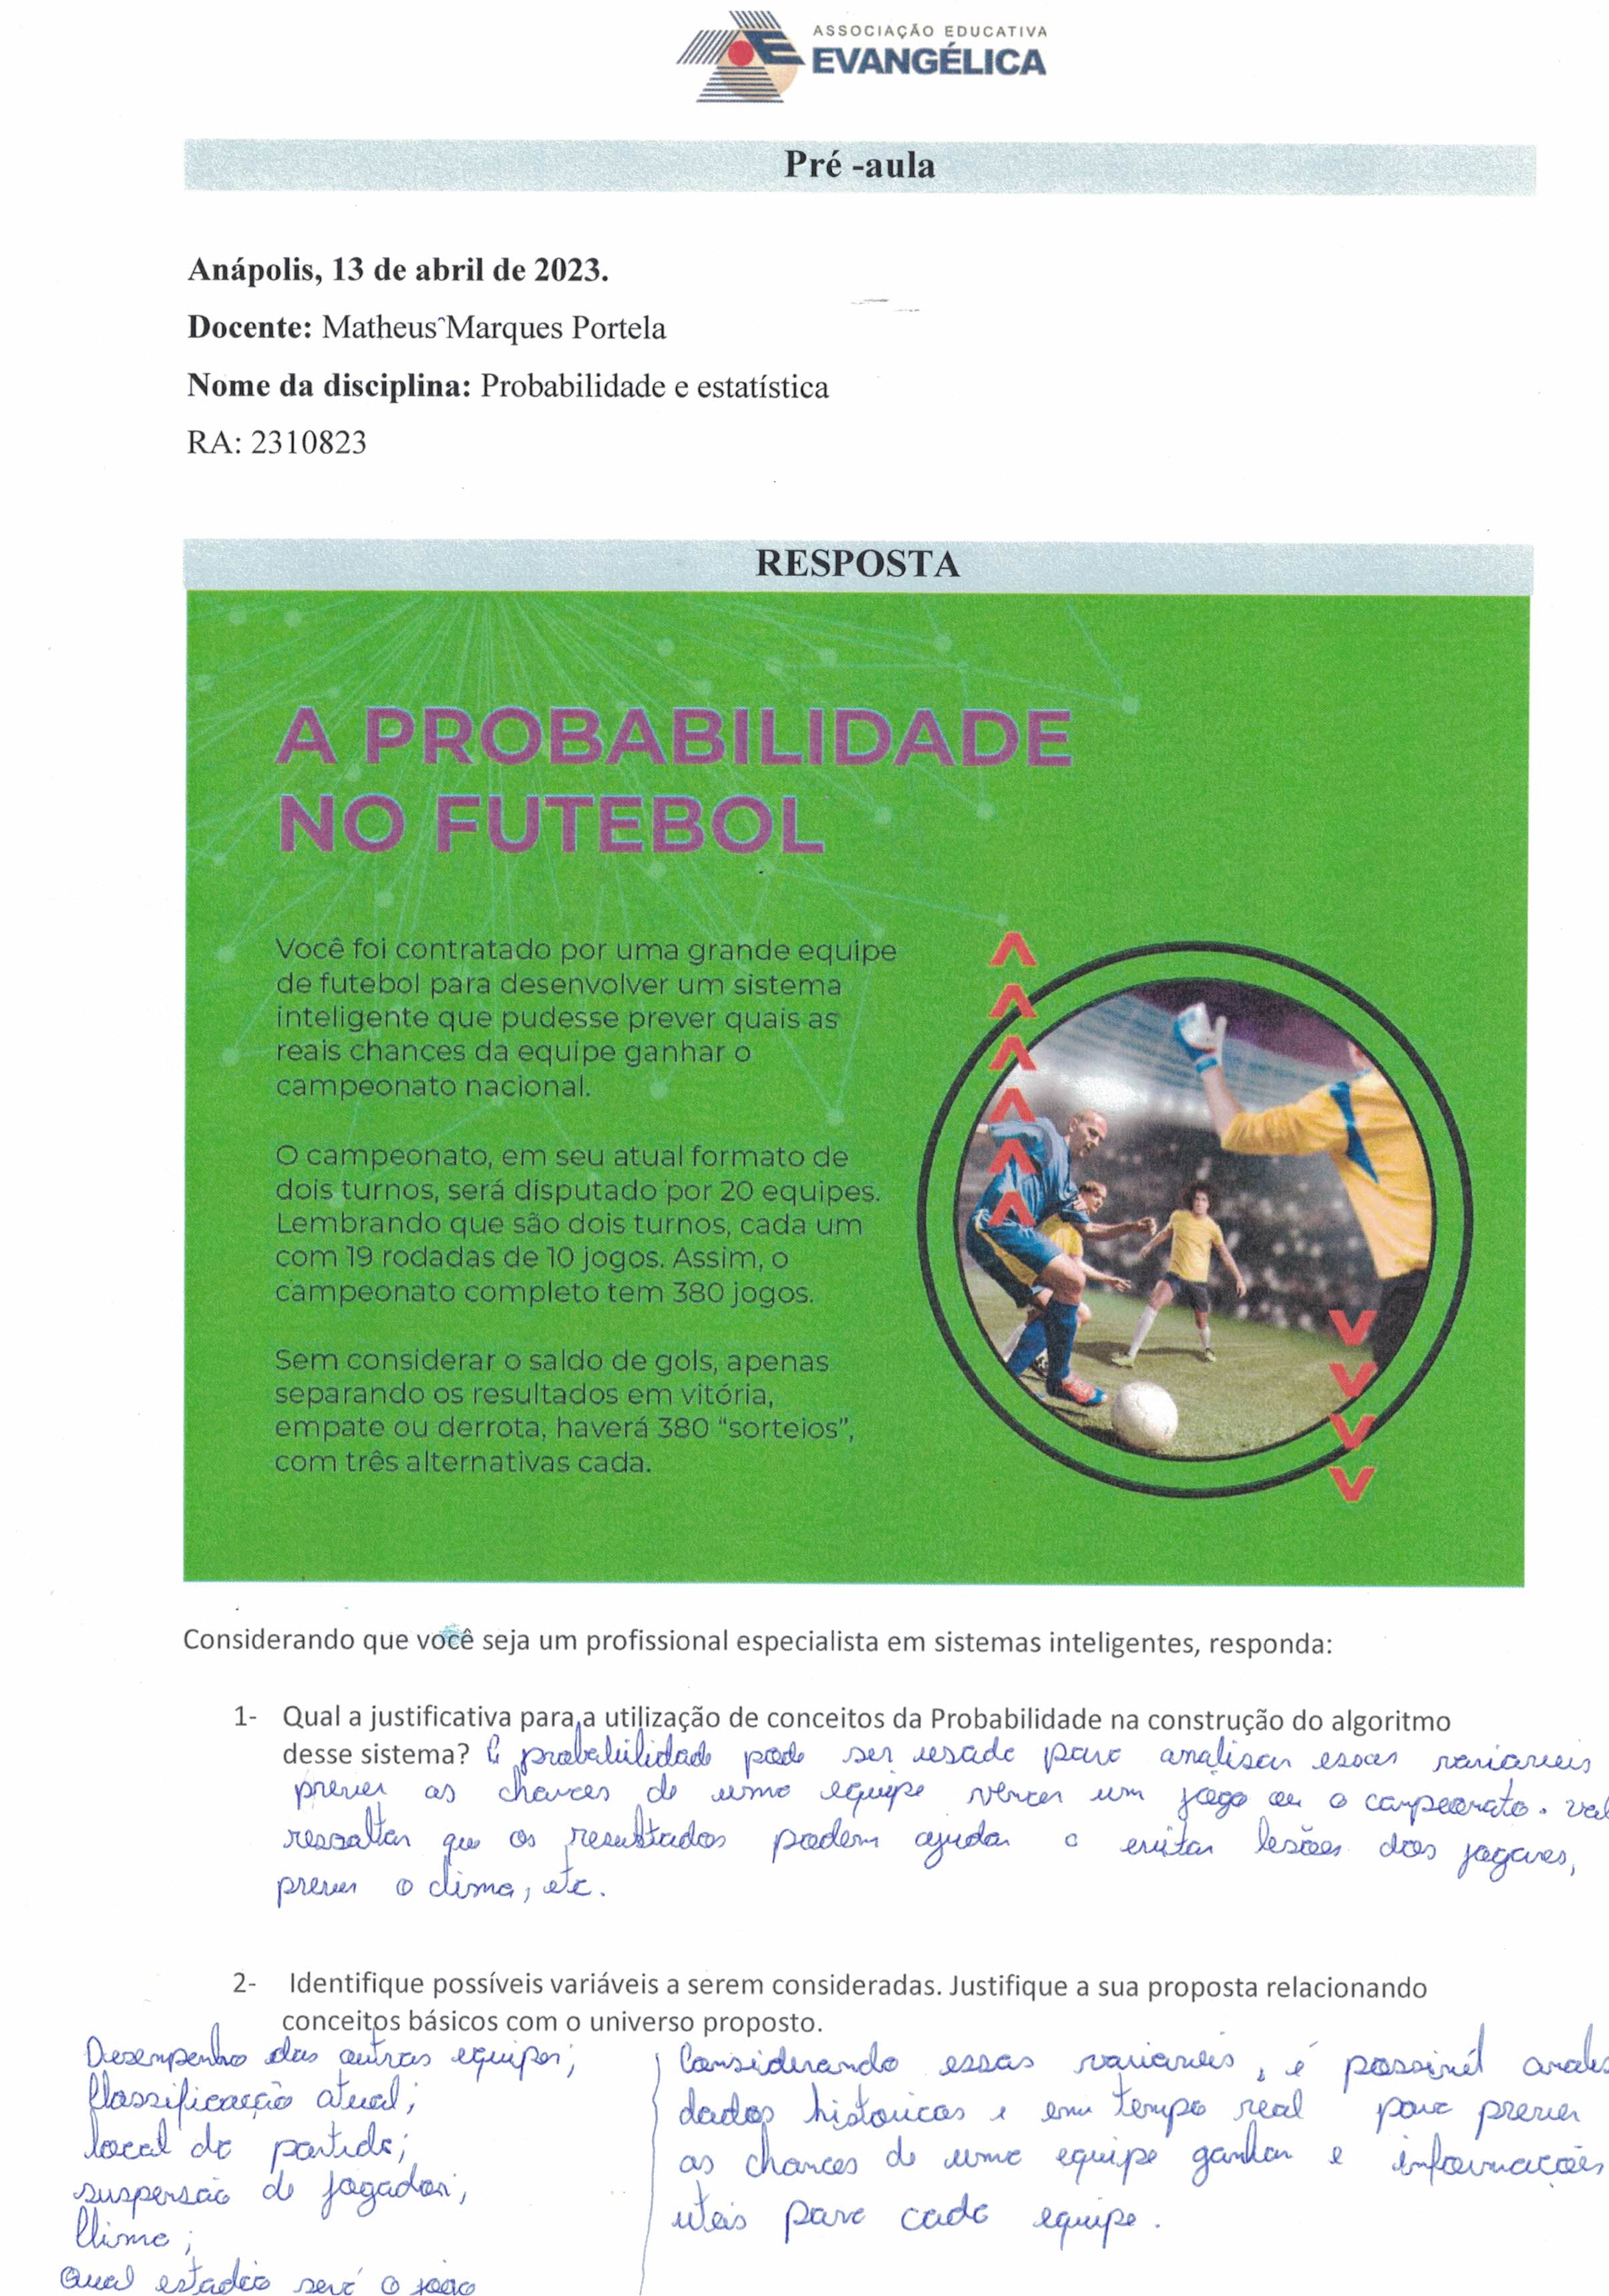 ASSOCIAÇÃO EDUCATIVA
EVANGÉLICA
Pré -aula
Anápolis, 13 de abril de 2023.
Docente: Matheus Marques Portela
Nome da disciplina: Probabilidade e estatística
RA: 2310823
RESPOSTA
A PROBABILIDADE
NO FUTEBOL
Você foi contratado por uma grande equipe
de futebol para desenvolver um sistema
inteligente que pudesse prever quais as
reais chances da equipe ganhar o
campeonato nacional.
O campeonato, em seu atual formato de
dois turnos, será disputado por 20 equipes.
Lembrando que são dois turnos, cada um
com 19 rodadas de 10 jogos. Assim, o
campeonato completo tem 380 jogos.
Sem considerar o saldo de gols, apenas
separando os resultados em vitória,
empate ou derrota, haverá 380 “sorteios”,
com três alternativas cada.
Considerando que você seja um profissional especialista em sistemas inteligentes, responda:
1- Qual a justificativa para a utilização de conceitos da Probabilidade na construção do algoritmo
desse sistema? A probabilidade pode ser usada para analisar essas variaveis
prever as chances de uma equipe vencer um jogo ou o campeonato. Val
ressaltar que os resultados podem ajudar a evitar lesões dos jogares,
prever o clima, etc.
2- Identifique possíveis variáveis a serem consideradas. Justifique a sua proposta relacionando
conceitos básicos com o universo proposto.
Desempenho das outras equipes;
Classificação atual;
local da partida;
suspensão de jogador;
Clima;
Qual estadio será o jogo
Considerando essas variaveis, é possivel
dados historicos e em tempo real para prever
as chances de uma equipe ganhar e informações
uteis para cada equipe.